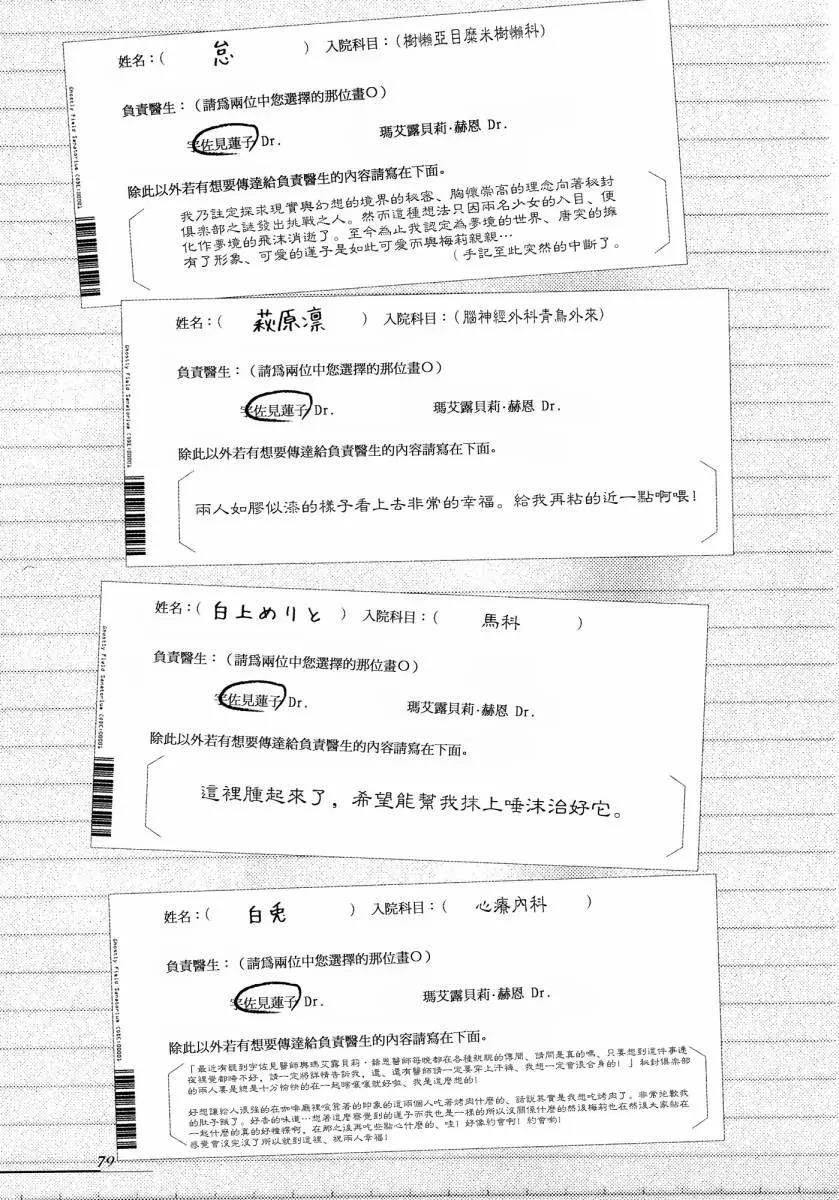 姓名：( 怠 ) 入院科目：(樹懶亞目糜米樹懶科)
負責醫生：(請爲兩位中您選擇的那位畫O)
宇佐見蓮子 Dr. 瑪艾露貝莉·赫恩 Dr.
除此以外若有想要傳達給負責醫生的內容請寫在下面。
我乃註定探求現實與幻想的境界的秘密、胸懷崇高的理念向著秘封
俱樂部之謎發出挑戰之人。然而這種想法只因兩名少女的入目、便
化作夢境的飛沫消逝了。至今為止我認定為夢境的世界、唐突的擁
有了形象、可愛的蓮子是如此可愛而與梅莉親親…
(手記至此突然的中斷了。
Ghostly Field Sanatorium CODE:00001
姓名：( 萩原凛 ) 入院科目：(腦神經外科青鳥外來)
負責醫生：(請爲兩位中您選擇的那位畫O)
宇佐見蓮子 Dr. 瑪艾露貝莉·赫恩 Dr.
除此以外若有想要傳達給負責醫生的內容請寫在下面。
兩人如膠似漆的樣子看上去非常的幸福。給我再粘的近一點啊喂!
Ghostly Field Sanatorium CODE:00001
姓名：( 白上めりと ) 入院科目：( 馬科 )
負責醫生：(請爲兩位中您選擇的那位畫O)
宇佐見蓮子 Dr. 瑪艾露貝莉·赫恩 Dr.
除此以外若有想要傳達給負責醫生的內容請寫在下面。
這裡腫起來了，希望能幫我抹上唾沫治好它。
Ghostly Field Sanatorium CODE:00001
姓名：( 白兎 ) 入院科目：( 心療內科 )
負責醫生：(請爲兩位中您選擇的那位畫O)
宇佐見蓮子 Dr. 瑪艾露貝莉·赫恩 Dr.
除此以外若有想要傳達給負責醫生的內容請寫在下面。
「最近有聽到宇佐見醫師與瑪艾露貝莉·赫恩醫師每晚都在各種親親的傳聞、請問是真的嗎、只要想到這件事連
夜裡覺都睡不好，請一定將詳情告訴我，還、還有醫師請一定要穿上汗褲、我想一定會很合身的！」秘封俱樂部
的兩人要是總是十分愉快的在一起就好啦、我是這麼想的!
好想讓給人很強的在咖啡廳裡 著的印象的這兩個人吃著烤肉什麼的、話說其實是我想吃烤肉了。非常地軟我
的肚子餓了。好香的味道…想著這麼感覺到的蓮子而我也是一樣的所以沒關係什麼的然後梅莉也在然後大家黏在
一起什麼的真的好棒棵啊，在那之後再吃些點心什麼的、哇！好像約會啊！約會喲!
感覺會沒完沒了所以就到這裡、祝兩人幸福!
Ghostly Field Sanatorium CODE:00001
79